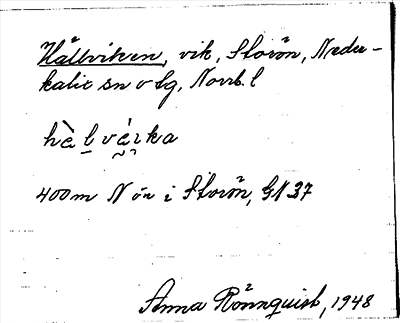 Hållviken, vik, Storön, Neder-
kalix sn o tg, Norrb. l
hàl̠ vá̰ıka
400 m N ön i Storön, GN 37
Anna Rönnquist, 1948